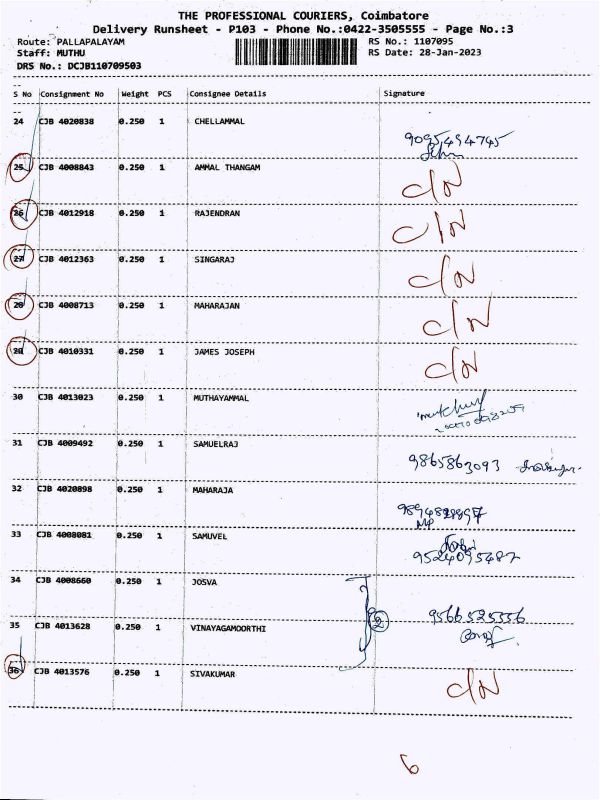 THE PROFESSIONAL COURIERS, Coimbatore
Delivery Runsheet - P103 - Phone No.:0422-3505555 - Page No.:3
Route: PALLAPALAYAM RS No.: 1107095
Staff: MUTHU RS Date: 28-Jan-2023
DRS No.: DCJB110709503
S No Consignment No Weight PCS Consignee Details Signature
24 CJB 4020838 0.250 1 CHELLAMMAL
9095494745
25 CJB 4008843 0.250 1 AMMAL THANGAM C/N
26 CJB 4012918 0.250 1 RAJENDRAN C/N
27 CJB 4012363 0.250 1 SINGARAJ C/N
28 CJB 4008713 0.250 1 MAHARAJAN C/N
29 CJB 4010331 0.250 1 JAMES JOSEPH C/N
30 CJB 4013023 0.250 1 MUTHAYAMMAL
31 CJB 4009492 0.250 1 SAMUELRAJ 9865863093
32 CJB 4020898 0.250 1 MAHARAJA
33 CJB 4008081 0.250 1 SAMUVEL
9524095487
34 CJB 4008660 0.250 1 JOSVA
2 9566525556
35 CJB 4013628 0.250 1 VINAYAGAMOORTHI
36 CJB 4013576 0.250 1 SIVAKUMAR C/N
6